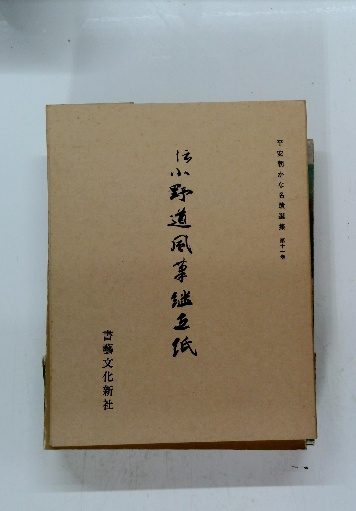 平安朝かな名蹟選集 第十一巻
伝小野道風筆継色紙
書藝文化新社